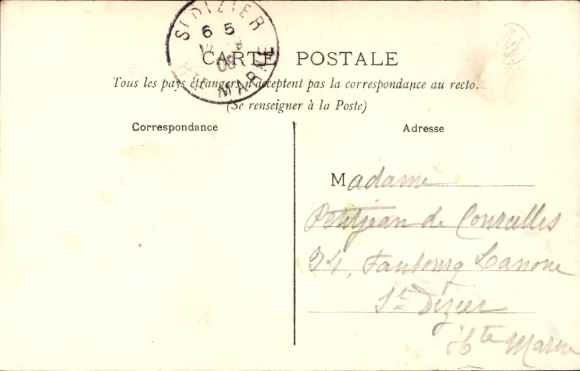 ST DIZIER
6 5
12
08
HTE MARNE
CARTE POSTALE
Tous les pays étrangers n'acceptent pas la correspondance au recto.
(Se renseigner à la Poste)
Correspondance
Adresse
Madame
Petitjean de Courcelles
34, Faubourg Lanoue
St Dizier
Hte Marne